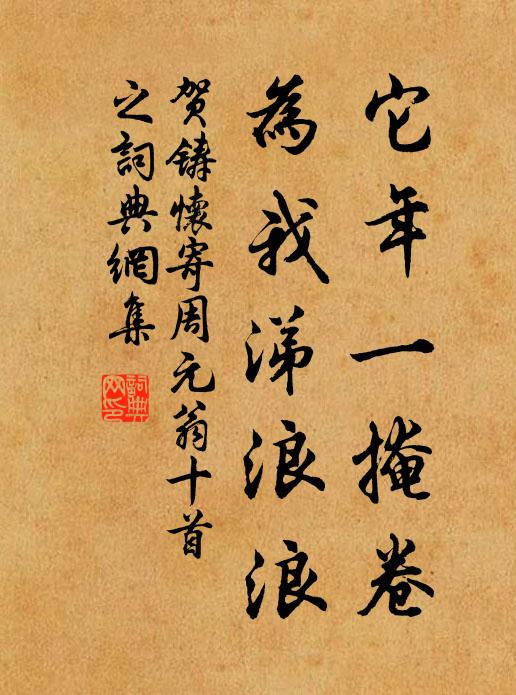 它年一掩卷
為我涕浪浪
賀鑄懷寄周元翁十首
之詞典網集
詞典網印